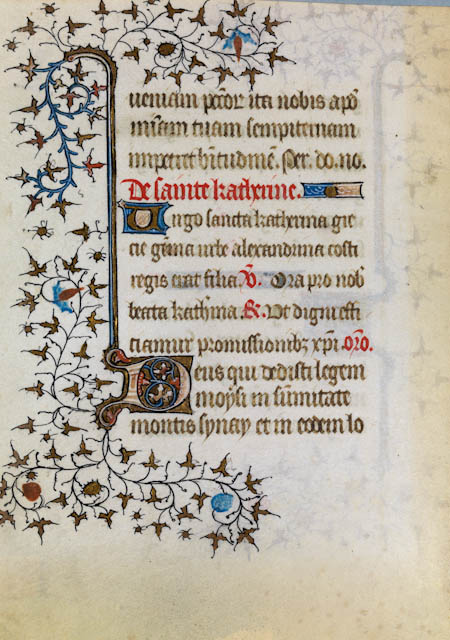 ueniam pc̄cōꝝ ita nobis apd̓
miām tuam sempiternam
impetret bt̄itudinē. Per. do. no.
De sainte katherine.
Uirgo sancta katherina gre
cie gēma urbe alexandrina costi
regis erat filia V̄. Ora pro nob̓
beata kath̓ina. R̄. Ut digni effi
ciamur promissionibꝫ xp̄i. oro᷑.
Deus qui dedisti legem
moysi in sūmitate
montis synay et in eodem lo